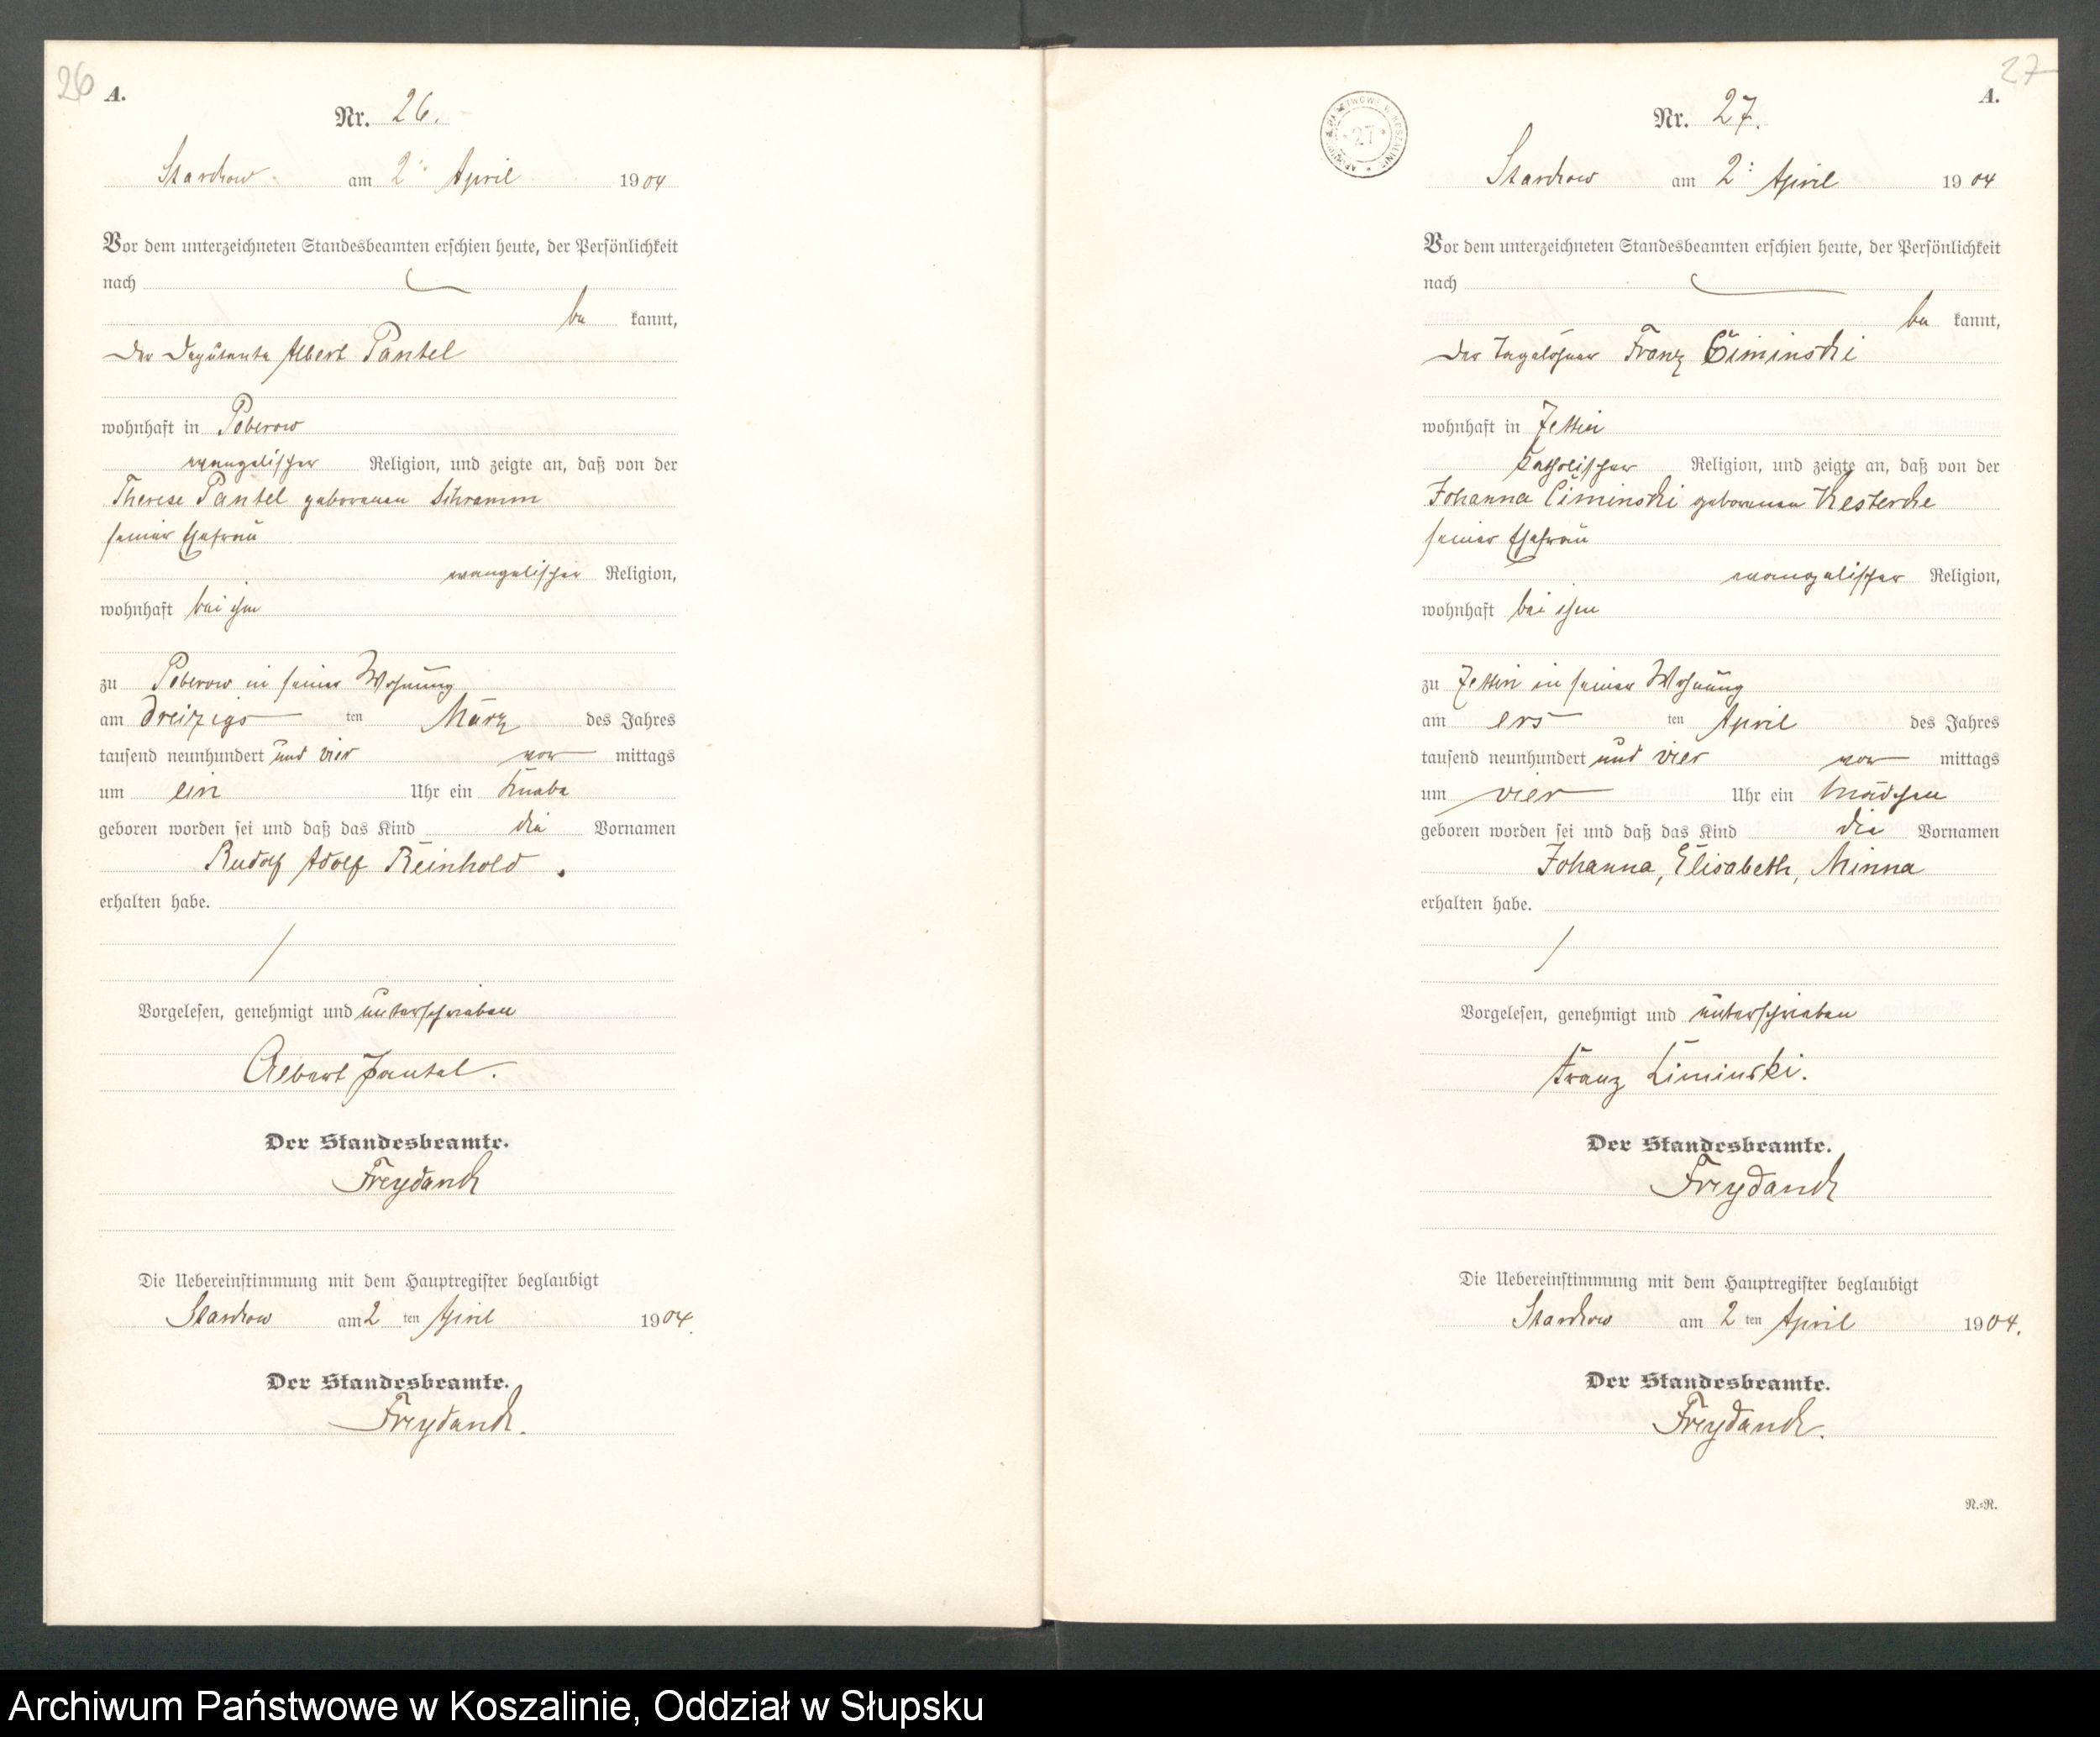 26
A.
Nr. 26.
Starckow am 2. April 1904
Vor dem unterzeichneten Standesbeamten erschien heute, der Persönlichkeit
nach
be kannt,
der Deputante Albert Pantel
wohnhaft in Poberow
evangelischer Religion, und zeigte an, daß von der
Therese Pantel geborenen Schramm
seiner Ehefrau
evangelischer Religion,
wohnhaft bei ihm
zu Poberow in seiner Wohnung
am dreizigs ten März des Jahres
tausend neunhundert und vier vor mittags
um ein Uhr ein Knabe
geboren worden sei und daß das Kind die Vornamen
Rudolf Adolf Reinhold.
erhalten habe.
Vorgelesen, genehmigt und unterschrieben
Albert Pantel.
Der Standesbeamte.
Freydanck
Die Uebereinstimmung mit dem Hauptregister beglaubigt
Starckow am 2 ten April 1904.
Der Standesbeamte.
Freydanck.
27
A.
27
Nr. 27.
Starckow am 2. April 1904
Vor dem unterzeichneten Standesbeamten erschien heute, der Persönlichkeit
nach
be kannt,
der Tagelöhner Franz Ciminski
wohnhaft in Zettin
katholischer Religion, und zeigte an, daß von der
Johanna Ciminski geborenen Kesterke
seiner Ehefrau
evangelischer Religion,
wohnhaft bei ihm
zu Zettin in seiner Wohnung
am ers ten April des Jahres
tausend neunhundert und vier vor mittags
um vier Uhr ein Mädchen
geboren worden sei und daß das Kind die Vornamen
Johanna, Elisabeth, Minna
erhalten habe.
Vorgelesen, genehmigt und unterschrieben
Franz Ciminski.
Der Standesbeamte.
Freydanck
Die Uebereinstimmung mit dem Hauptregister beglaubigt
Starckow am 2 ten April 1904.
Der Standesbeamte.
Freydanck.
N.=R.
Archiwum Państwowe w Koszalinie, Oddział w Słupsku